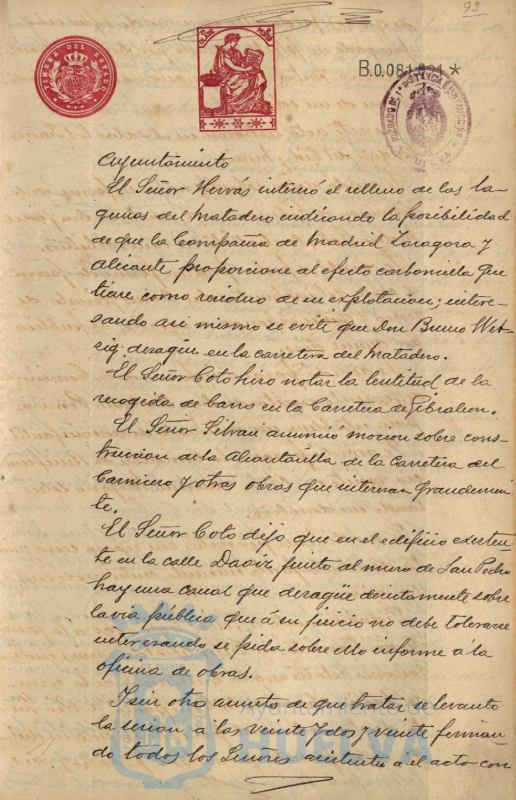 92
TIMBRE DEL ESTADO
B.0,081,821 ★
JUZGADO DE 1ª INSTANCIA E INSTRUCCION
HUELVA
Ayuntamiento
El Señor Hervás interesó el relleno de las la-
gunas del Matadero indicando la posibilidad
de que la Compañia de Madrid Zaragoza y
Alicante proporcione al efecto carbonilla que
tiene como residuo de su explotacion; intere-
sando asi mismo se evite que Don Bruno Wet-
zig desagüe en la carretera del Matadero.
El Señor Coto hizo notar la lentitud de la
recogida de barro en la Carretera de Gibraleon.
El Señor Silvan anunció mocion sobre cons-
truccion de la Alcantarilla de la Carretera del
Carnicero y otras obras que interesan grandemen-
te.
El Señor Coto dijo que en el edificio existen-
te en la calle Daoiz junto al muro de San Pedro
hay una canal que desagüe directamente sobre
la via pública que á su juicio no debe tolerarse
interesando se pida sobre ello informe a la
oficina de obras.
Y sin otro asunto de que tratar se levantó
la sesion a las veinte y dos y veinte firman-
do todos los Señores asistentes a el acto con
HUELVA